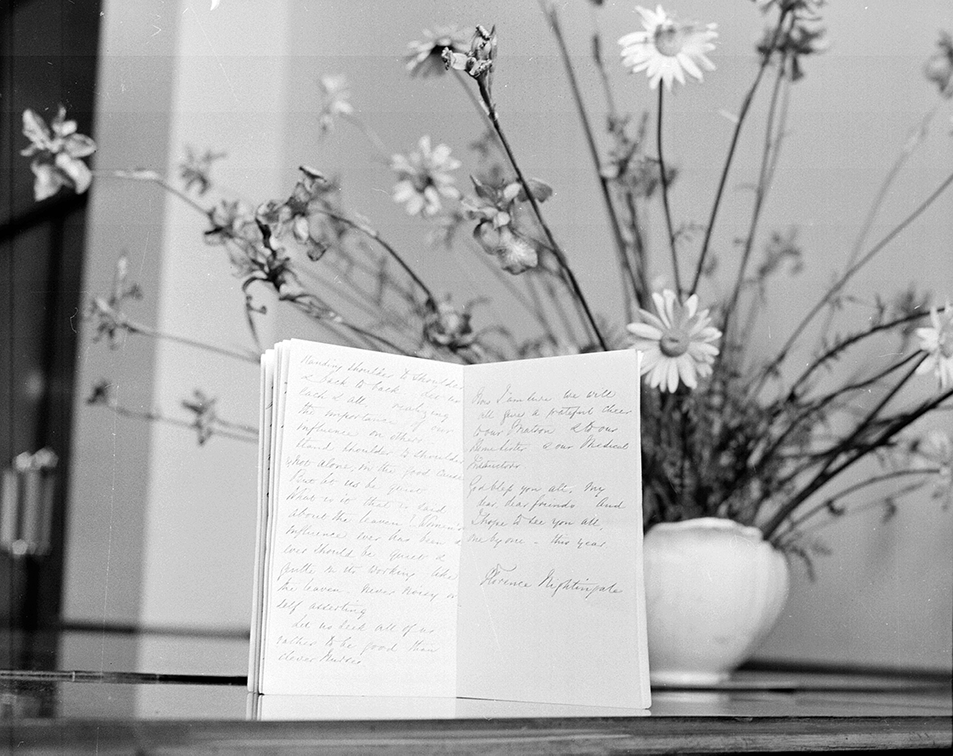 Standing shoulder to shoulder
& back to back
each & all realizing
the importance of our
influence on others
stand shoulder to shoulder
& not alone, in the good cause
But let us be quiet
What is it that is said
about the leaven? Women's
influence ever has been &
ever should be quiet &
gentle in its working like
the leaven - never noisy or
self asserting
Let us seek all of us
rather to be good than
clever Nurses
Now I am sure we will
all give a grateful cheer
to our Matron & to our
Home Sister & our Medical
Instructors
God bless you all, my
dear, dear friends And
I hope to see you all,
one by one - this year
Florence Nightingale